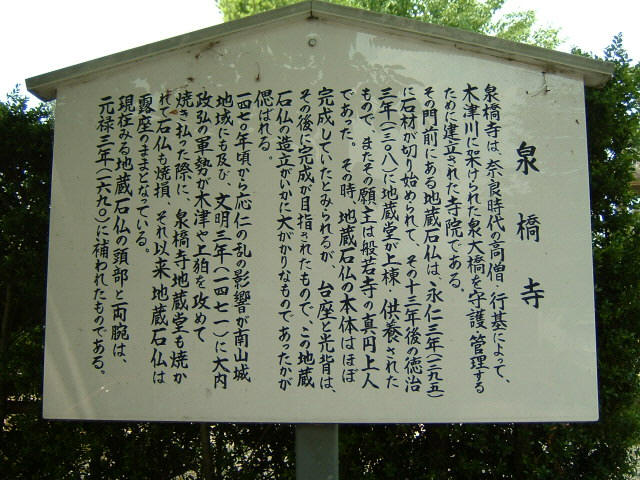 泉橋寺
泉橋寺は、奈良時代の高僧・行基によって、
木津川に架けられた泉大橋を守護・管理する
ために建立された寺院である。
その門前にある地蔵石仏は、永仁三年(一二九五)
に石材が切り始められて、その十三年後の徳治
三年(一三〇八)に地蔵堂が上棟・供養された
もので、またその願主は般若寺の真円上人
であった。その時、地蔵石仏の本体はほぼ
完成していたとみられるが、台座と光背は、
その後に完成が目指されたもので、この地蔵
石仏の造立がいかに大がかりなものであったかが
偲ばれる。
一四七〇年頃から応仁の乱の影響が南山城
地域にも及び、文明三年(一四七一)に大内
政弘の軍勢が木津や上狛を攻めて
焼き払った際に、泉橋寺地蔵堂も焼か
れて石仏も焼損、それ以来地蔵石仏は
露座のままとなっている。
現在みる地蔵石仏の頭部と両腕は、
元禄三年(一六九〇)に補われたものである。